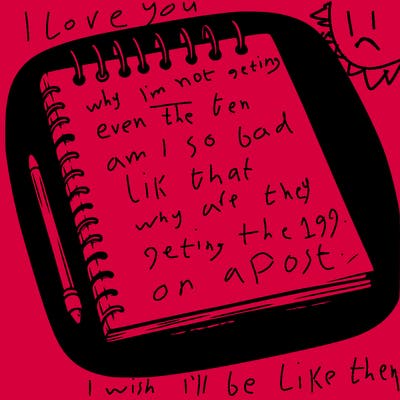 I Love you
why I'm not geting
even the ten
am I so bad
lik that
why are they
geting the 199.
on a post..
I wish I'll be Like them